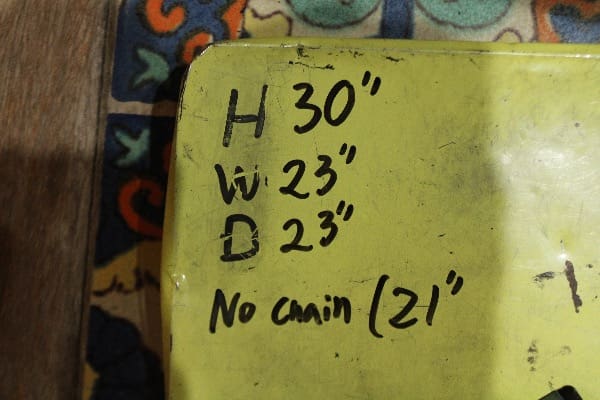 H 30"
W 23"
D 23"
No chain (21"